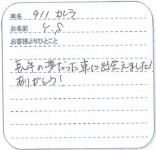 車名 911 カレラ
お名前 Y.S
お客様よりひとこと
長年の夢だった車に出会えました!
ありがとう!